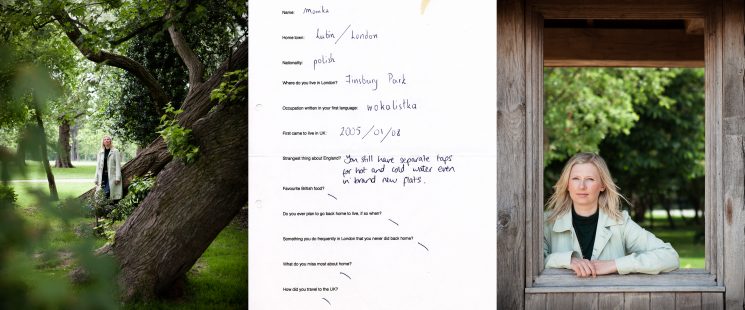 Name: monika
Home town: Lubin / London
Nationality: polish
Where do you live in London? Finsbury Park
Occupation written in your first language: wokalistka
First came to live in UK: 2005/01/08
Strangest thing about England? You still have separate taps
for hot and cold water even
in brand new flats.
Favourite British food?
Do you ever plan to go back home to live, if so when?
Something you do frequently in London that you never did back home?
What do you miss most about home?
How did you travel to the UK?